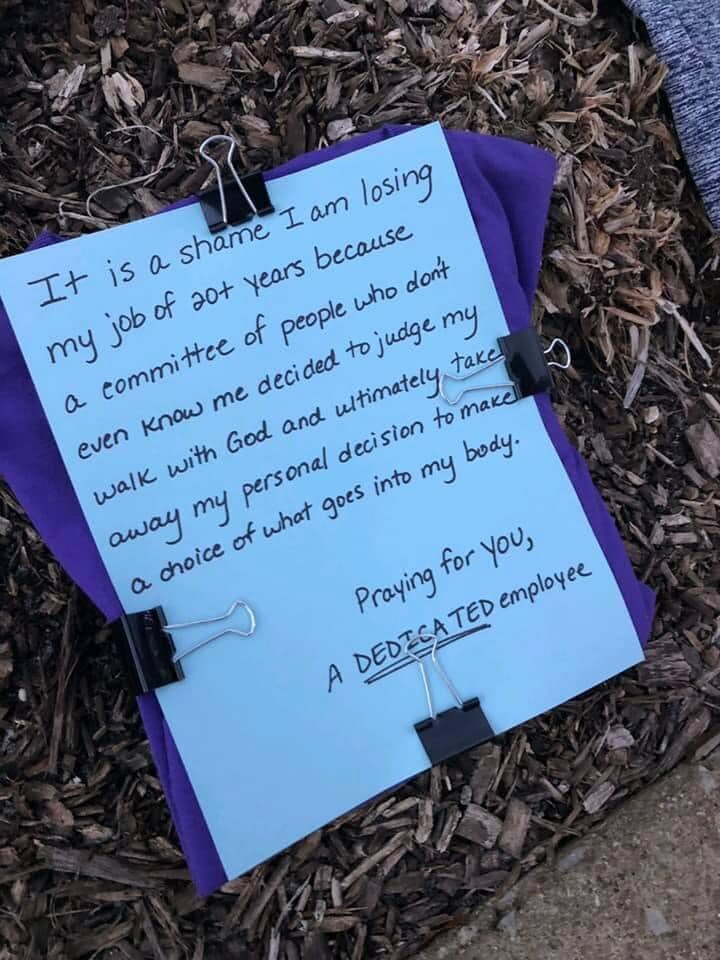 It is a shame I am losing
my job of 20+ years because
a committee of people who don't
even know me decided to judge my
walk with God and ultimately take
away my personal decision to make
a choice of what goes into my body.
Praying for you,
A DEDICATED employee